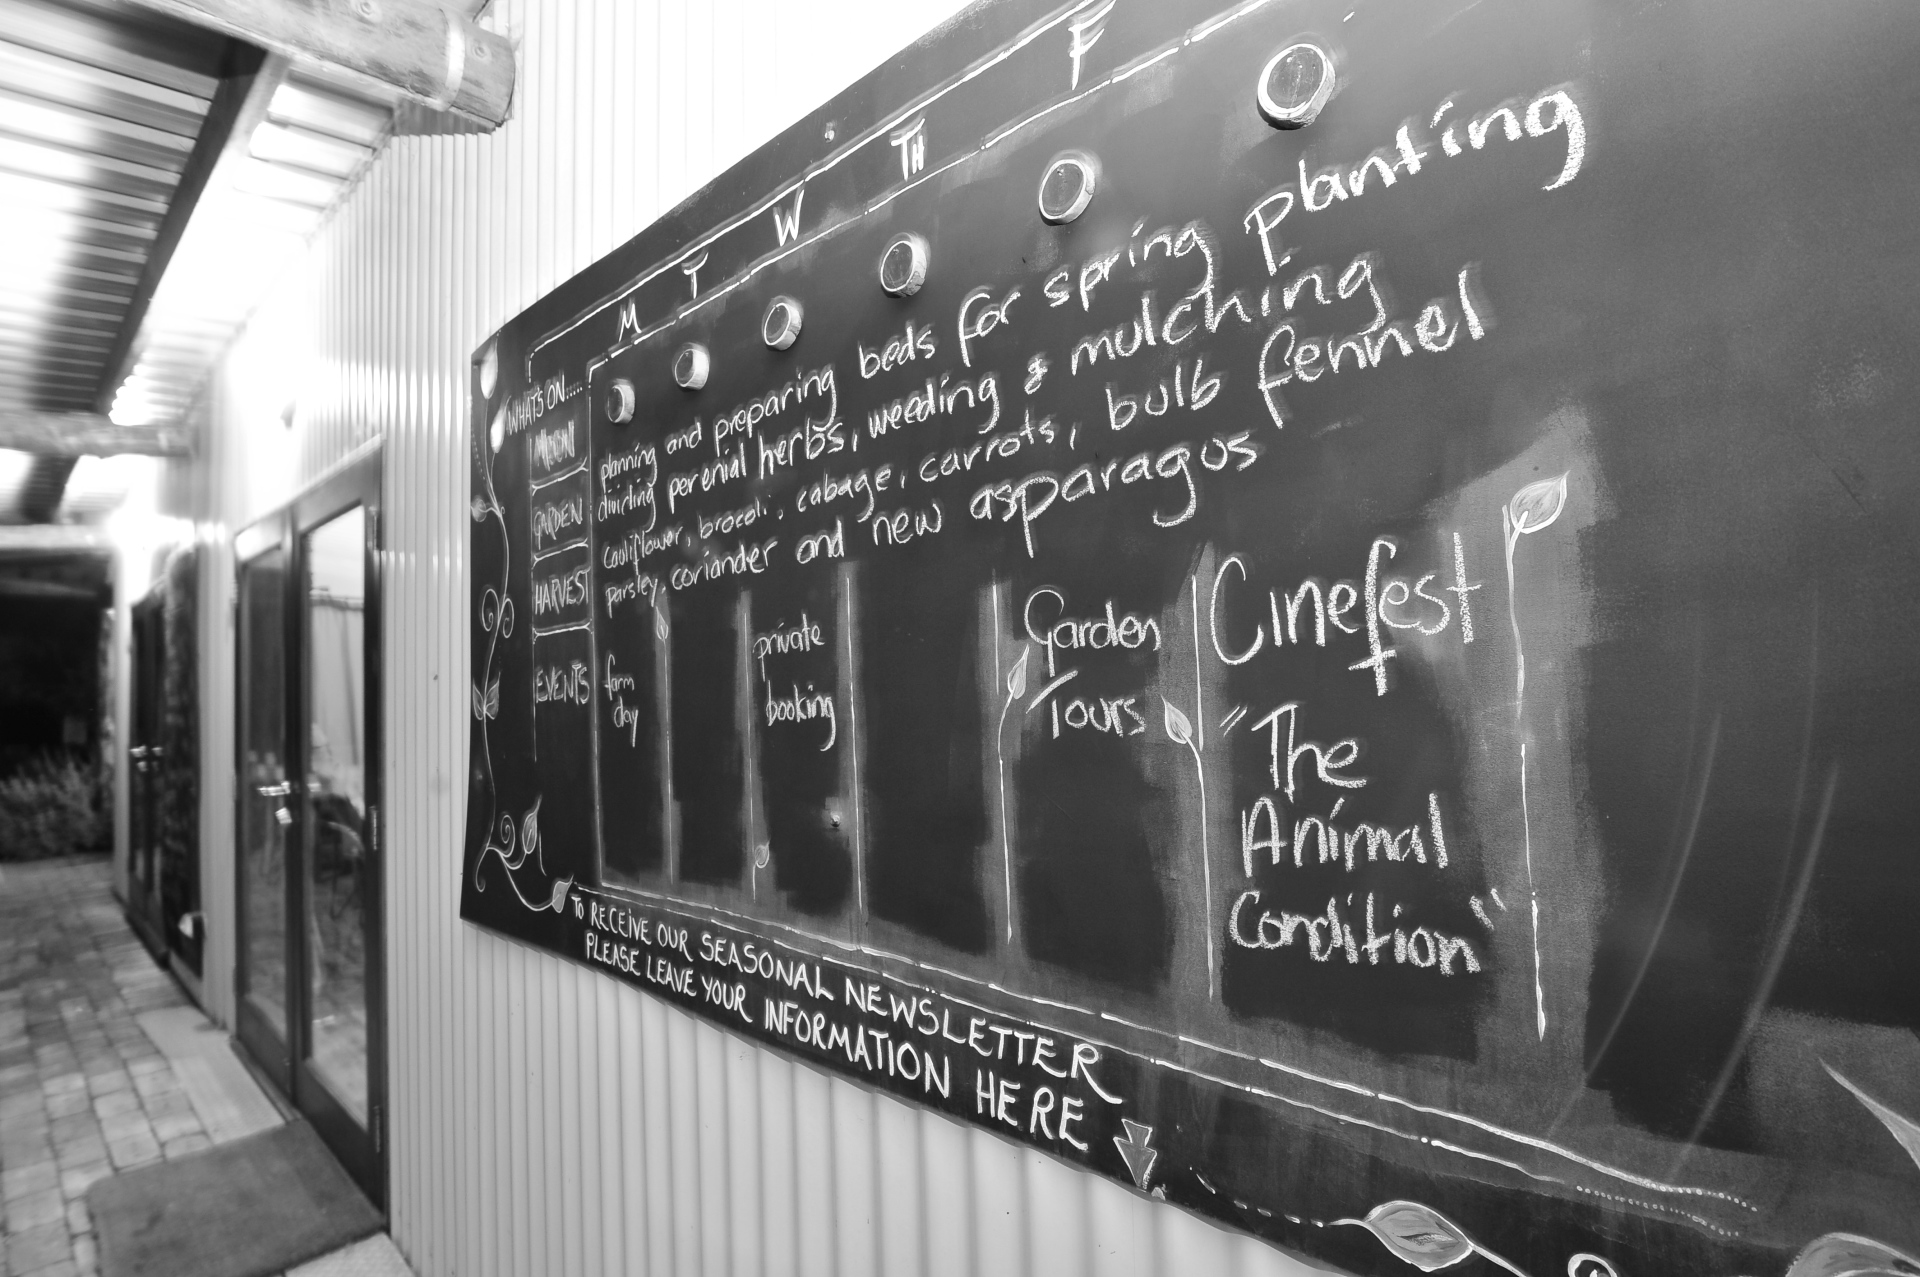 M T W TH F
WHATS ON.....
MOON
GARDEN
planning and preparing beds for spring planting
dividing perenial herbs, weeding & mulching
HARVEST
cauliflower, brocoli, cabage, carrots, bulb fennel
parsley, coriander and new asparagus
EVENTS
farm
day
private
booking
Garden
Tours
Cinefest
"The
Animal
Condition"
TO RECEIVE OUR SEASONAL NEWSLETTER
PLEASE LEAVE YOUR INFORMATION HERE